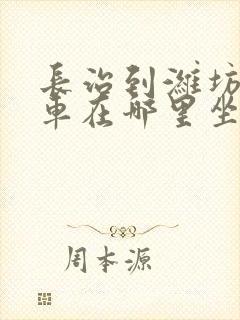 長治到潍坊
車在哪里坐
周本源